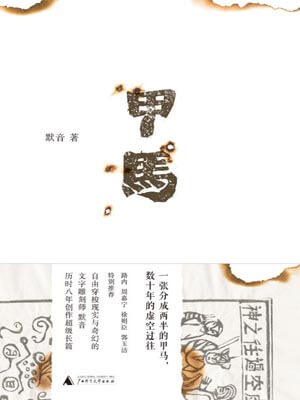 甲馬
默音 著
一张分成两半的甲马，
数十年的虚空过往
路内 周嘉宁 徐则臣 郭玉洁
特别推荐
自由穿梭现实与奇幻的
文字雕刻师 默音
历时八年创作超级长篇
广西师范大学出版社
虛空過往之神